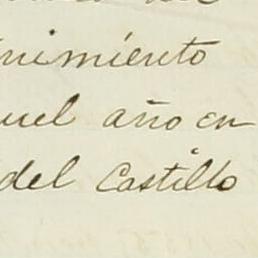 nimiento
uel año en
del Castillo